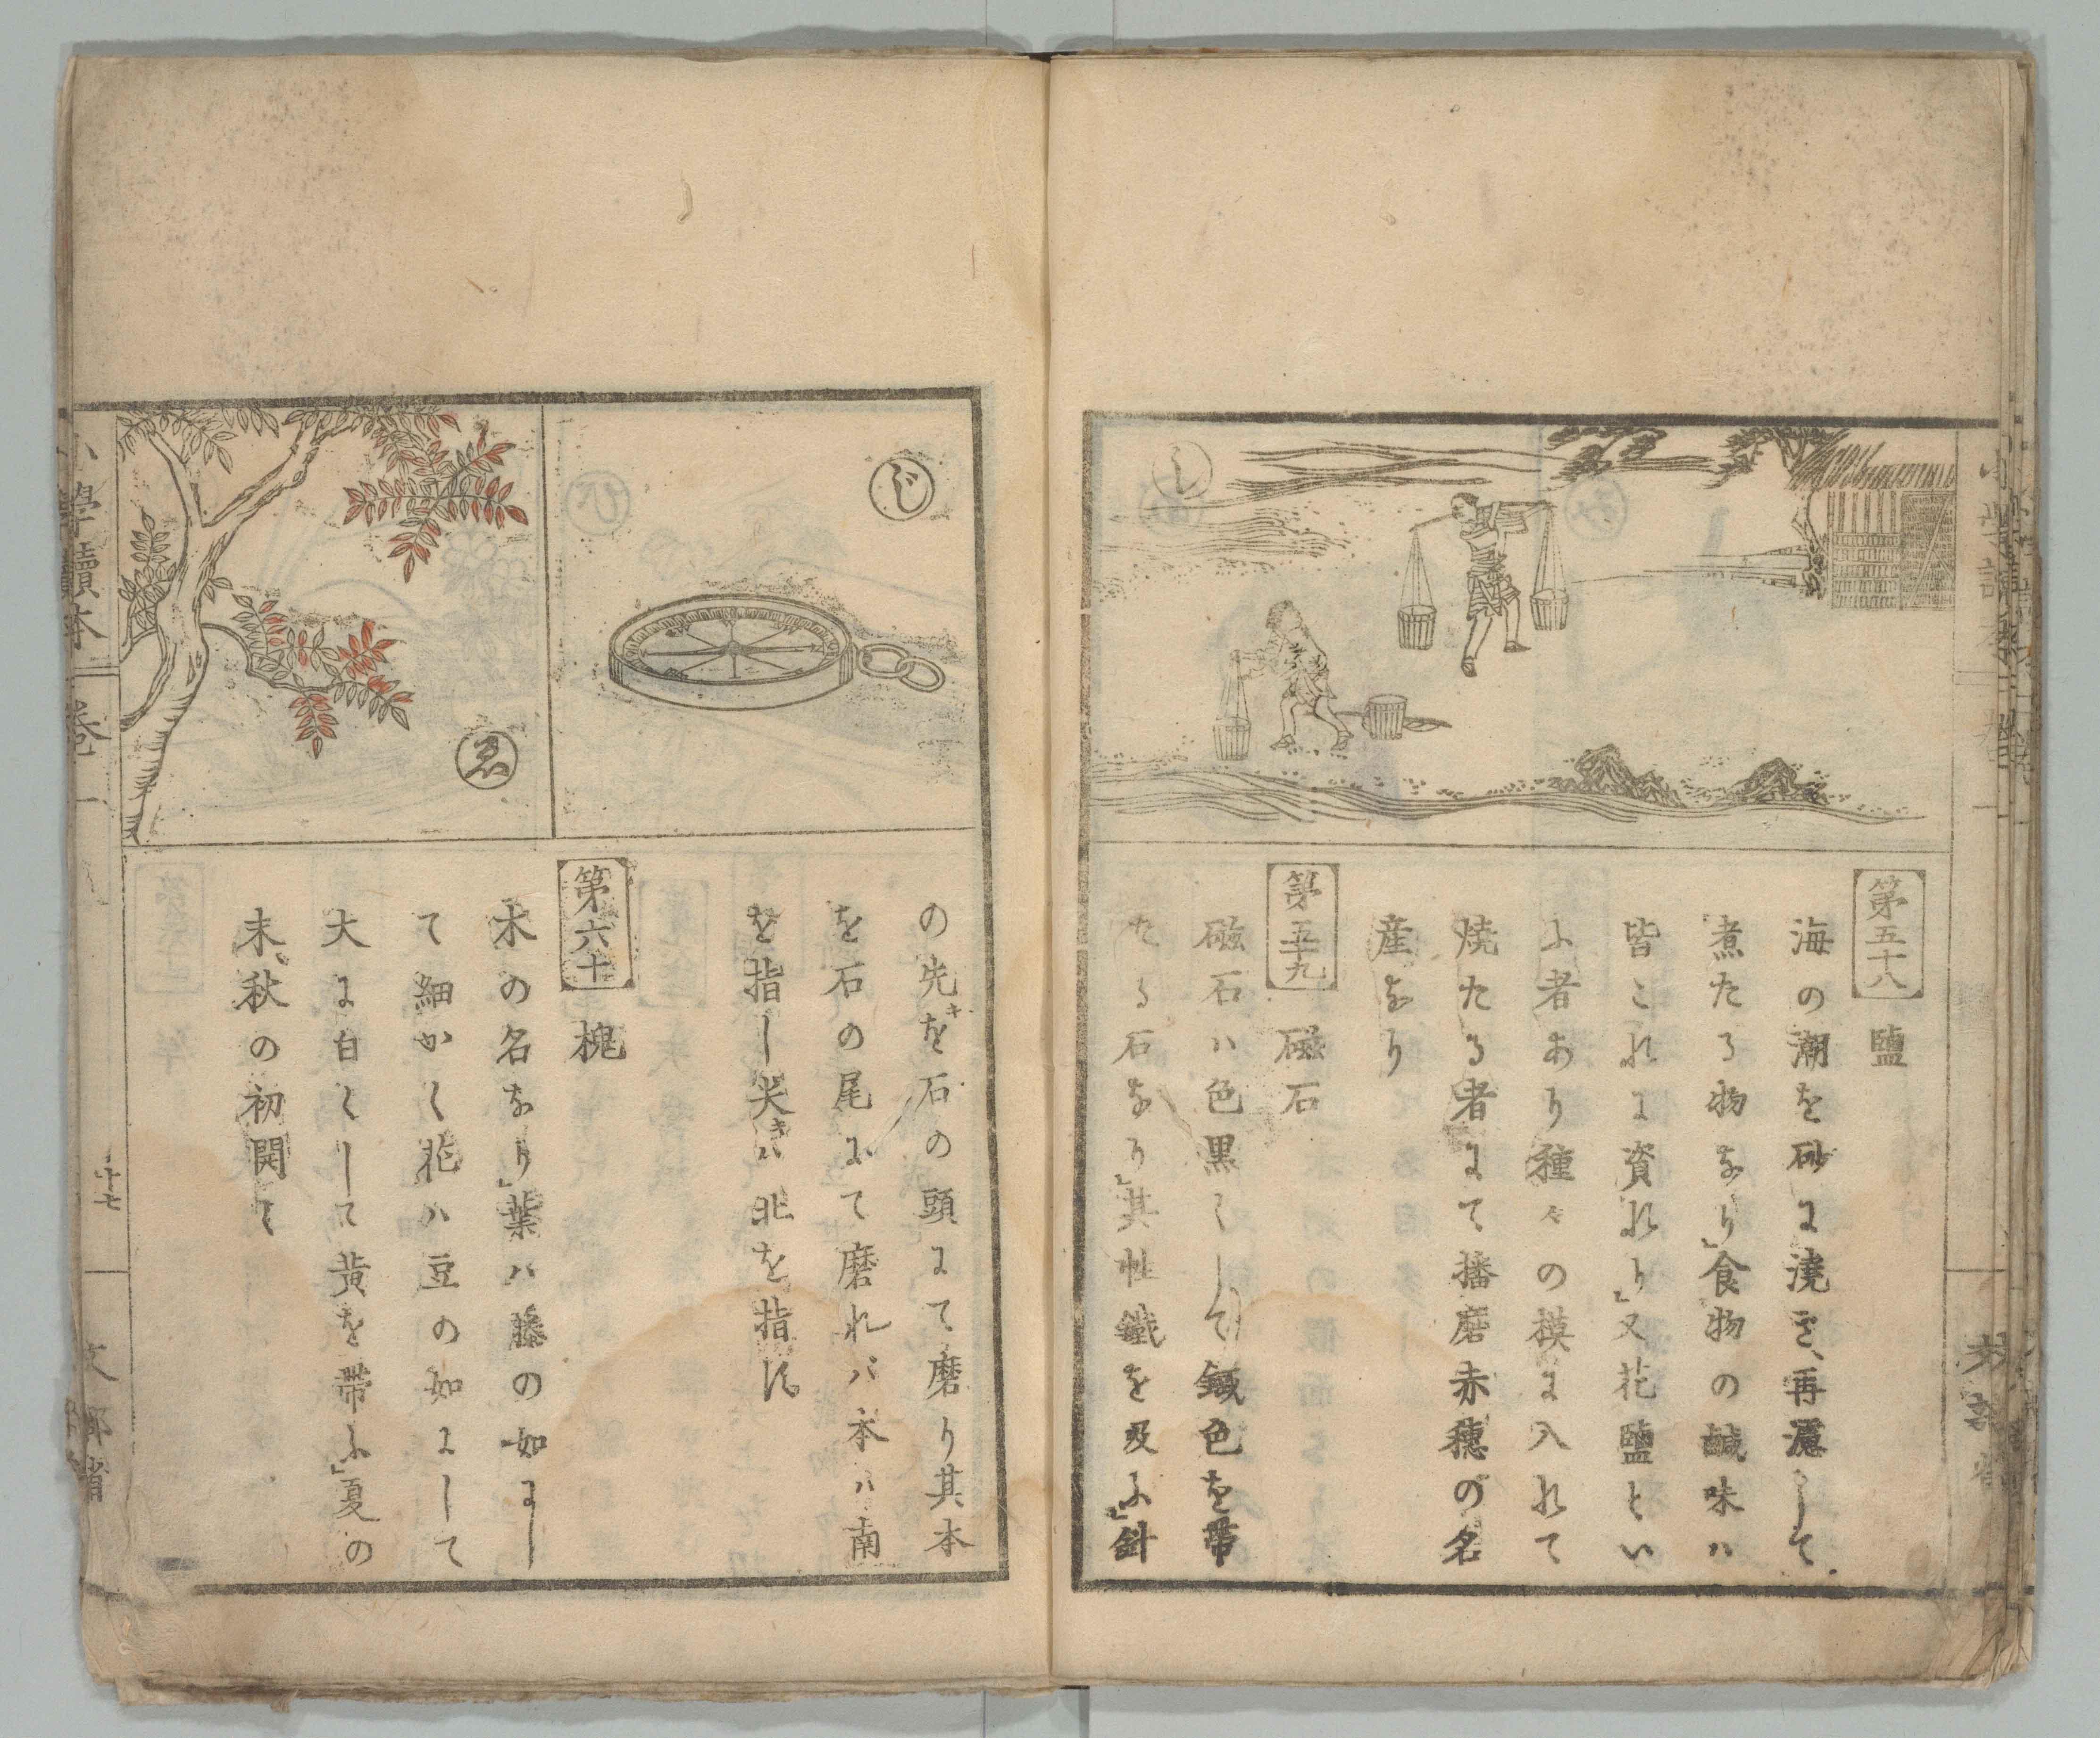 し
第五十八 鹽
海の潮を砂に澆き、再濾して
煮たる物なり」食物の鹹味ハ
皆これに資れり」又花鹽とい
ふ者あり種々の模に入れて
焼たる者にて播磨赤穂の名
産なり
第五十九 磁石
磁石ハ色黒くして鐵色を帯
たる石なり」其性鐵を及ふ」針
じ
ゑ
の先キを石の頭にて磨り其本
を石の尾にて磨れバ本ハ南
を指し尖きハ北を指す
第六十 槐
木の名なり」葉ハ藤の如にし
て細かく花ハ豆の如にして
大に白くして黄を帯ふ」夏の
末、秋の初開く
小學讀本
卷一
十七
文部省